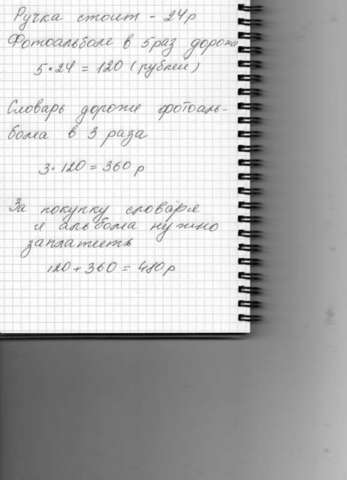 Ручка стоит - 24р
Фотоальбом в 5 раз дороже
5*24 = 120 (рублей)
Словарь дороже фотоаль-
бома в 3 раза
3·120 = 360 р
За покупку словаря
и альбома нужно
заплатить
120 + 360 = 480р